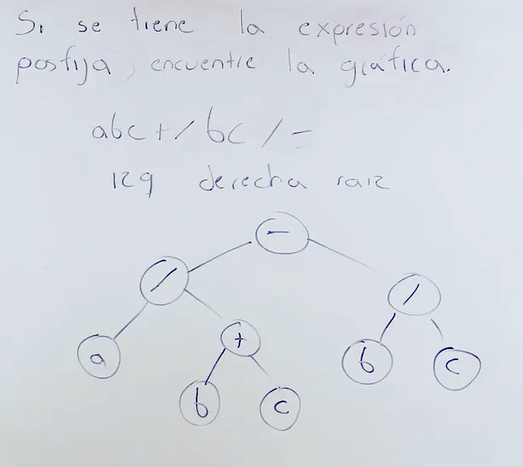 Si se tiene la expresión
posfija, encuentre la gráfica.
abc+/bc/-
izq derecha raiz
-
/ /
a + b c
b c